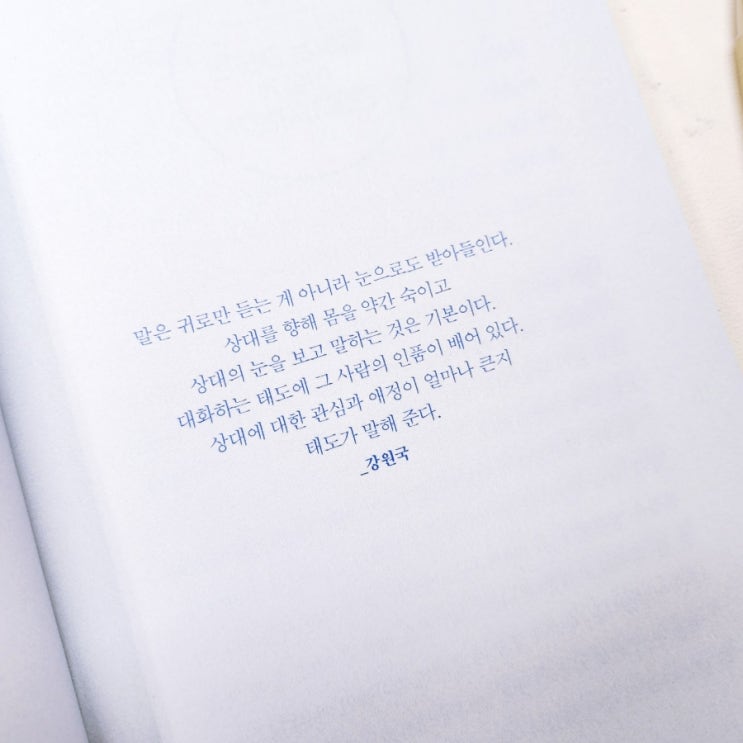 말은 귀로만 듣는 게 아니라 눈으로도 받아들인다.
상대를 향해 몸을 약간 숙이고
상대의 눈을 보고 말하는 것은 기본이다.
대화하는 태도에 그 사람의 인품이 배어 있다.
상대에 대한 관심과 애정이 얼마나 큰지
태도가 말해 준다.
_강원국